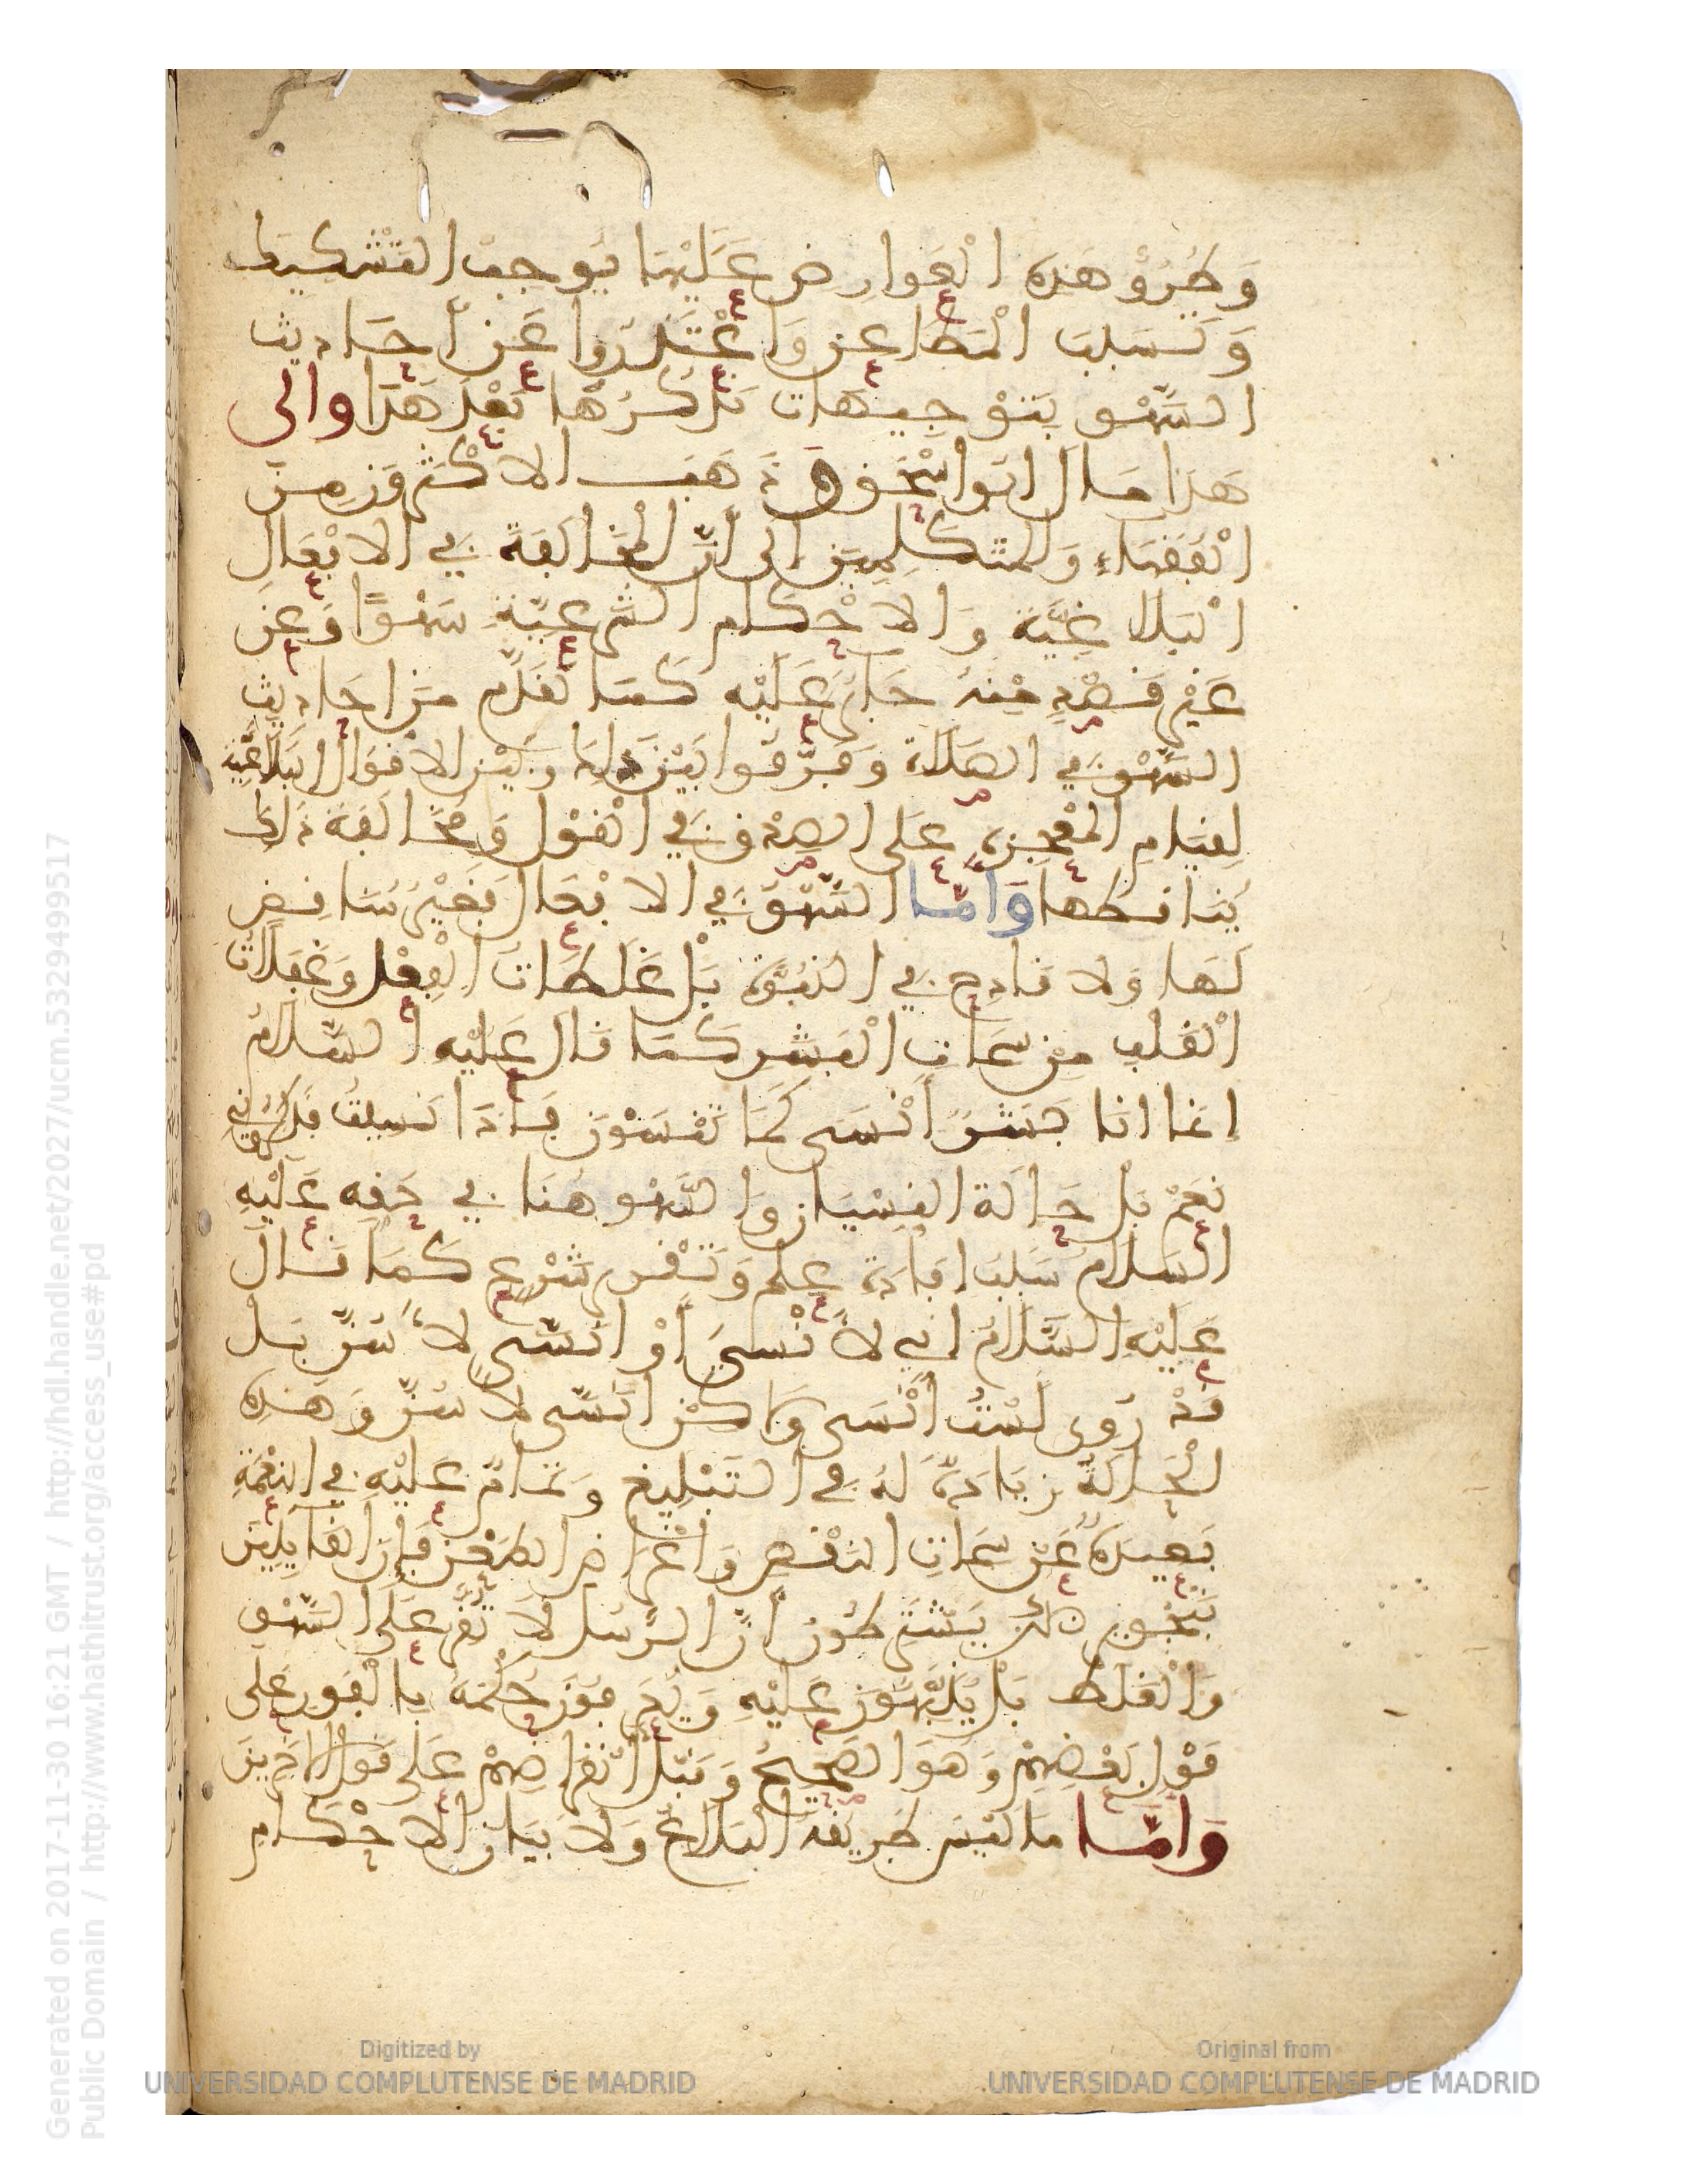 وَطُرُوُّ هَذِهِ الْعَوارِضِ عَلَيْهَا يُوجِبُ التَّشْكِيكَ
وَتَسَبُّبَ الْمَطَاعِنِ وَاعْتَذَرُوا عَنْ أَحَادِيثِ
السَّهْوِ بِتَوْجِيهَاتٍ نَذْكُرُهَا بَعْدَ هَذَا وإلى
هَذَا مَالَ أبُوا إسْحَقَ وَذَهَبَ الاكْثَرُونَ مِنَ
الْفُقَهَاءِ وَالمُتَكَلِّمِينَ إلى أنَّ الْمُخَالَفَةَ فِي الافْعَالِ
الْبَلَاغِيَّةِ وَالاحْكَامِ الشَّرْعِيَّةِ سَهْوًا وَعَنْ
غَيْرِ قَصْدٍ مِنْهُ جَائِزٌ عَلَيْهِ كَمَا تَقَدَّمَ مِنْ احَادِيثِ
السَّهْوِ فِي الصَّلَاةِ وَفَرَّقُوا بَيْنَ ذَلِكَ وبَيْنَ الاقْوَالِ الْبَلَاغِيَّةِ
لِقِيَامِ الْمُعْجِزَةِ عَلَى الصِّدْقِ فِي الْقَوْلِ وَمُخَالَفَةُ ذَلِكَ
يُنَاقِضُهَا وَأمَّا السَّهْوُ فِي الافْعَالِ فَغَيْرُ مُنَاقِضٍ
لَهَا وَلا قَادِحٍ فِي النُّبُوَّةِ بَلْ غَلَطَاتُ الْفِعْلِ وَغَفَلَاتُ
الْقَلْبِ مِنْ سِمَاتِ الْبَشَرِ كَمَا قَالَ عَلَيْهِ السَّلَامُ
إنما انَا بَشَرٌ أنْسَى كَمَا تَنْسَوْنَ فَإذَا نَسِيتُ فَذَكِّرُونِي
نَعَمْ بَلْ حَالَةُ النِّسْيَانِ وَالسَّهْوِ هُنَا فِي حَقِّهِ عَلَيْهِ
السَّلَامُ سَبَبُ إفَادَةِ عِلْمٍ وَتَقْرِيرِ شَرْعٍ كَمَا قَالَ
عَلَيْهِ السَّلَامُ إنِّي لأَنْسَى أَوْ أُنَسَّى لِأَسُنَّ بَلْ
قَدْ رُوِى لَسْتُ أَنْسَى وَلَكِنْ أُنَسَّى لِأَسُنَّ وَهَذِهِ
الْحَالَةُ زِيَادَةٌ لَهُ فِي التَّبْلِيغِ وَتَمَامٌ عَلَيْهِ فِي النِّعْمَةِ
بَعِيدَةٌ عَنْ سِمَاتِ النَّقْصِ وَاغْرَاضِ الطَّعْنِ فَإنَّ الْقَايِلِينَ
بِتَجْوِيزِ ذَلِكَ يَشْتَرِطُونَ أَنَّ الرُّسُلَ لَا تُقَرُّ عَلَى السَّهْوِ
وَالْغَلَطِ بَلْ يُنَبَّهُونَ عَلَيْهِ وَيُعَرَّفُونَ حُكْمَهُ بِالْفَوْرِ عَلَى
قَوْلِ بَعْضِهِمْ وَهُوَ الصَّحِيحُ وَقَبْلَ انْقِرَاضِهِمْ عَلَى قَوْلِ الاخَرِينَ
وَأمَّا مَا لَيْسَ طَرِيقُهُ الْبَلَاغَ وَلَا بَيَانَ الاحْكَامِ
Generated on 2017-11-30 16:21 GMT / http://hdl.handle.net/2027/ucm.5329499517
Public Domain / http://www.hathitrust.org/access_use#pd
Digitized by
UNIVERSIDAD COMPLUTENSE DE MADRID
Original from
UNIVERSIDAD COMPLUTENSE DE MADRID